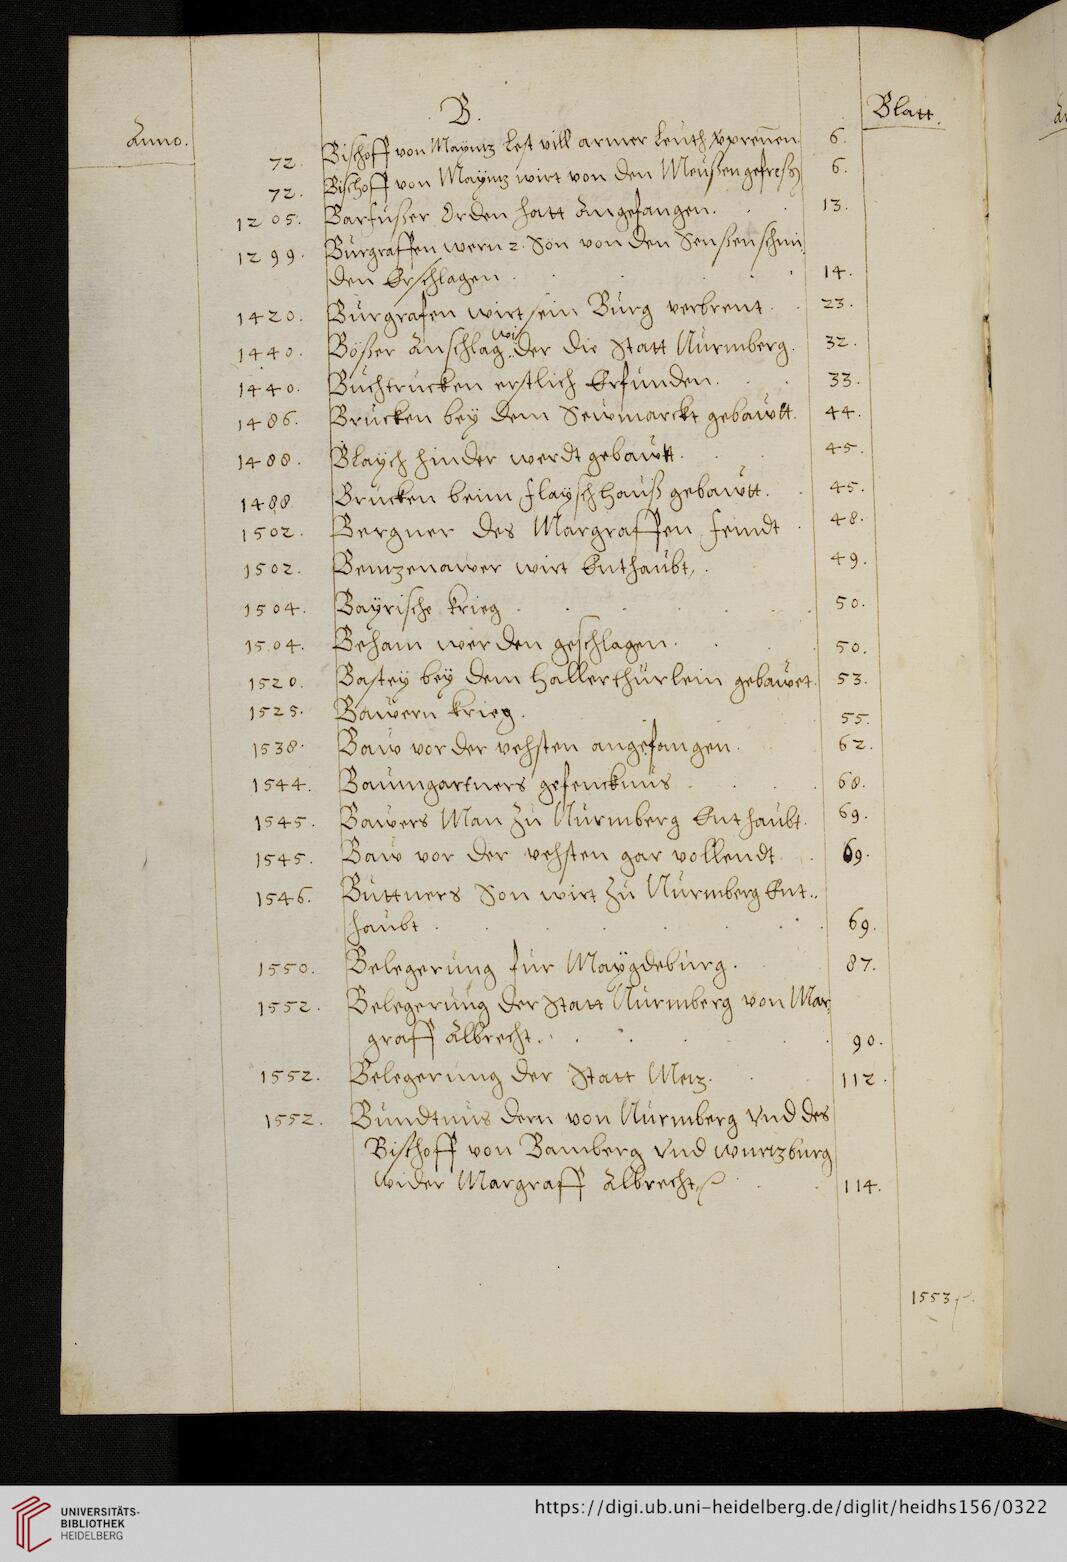 Anno.
B.
Blatt.
72. Bischoff von Mayntz lest vill armer leuth vprennen 6.
72. Bischoff von Mayntz wirt von den Meüßen gefreßen 6.
1205. Barfüßer Orden hatt Angefangen. 13.
1299. Bürgraffen wern 2. Sön von den Senßenschmi
den Erschlagen. 14.
1420. Bürgrafen wirt sein Bürg verbrent. 23.
1440. Bößer Anschlag wider die Statt Nürmberg. 32.
1440. Büchtrucken erstlich Erfunden. 33.
1486. Brücken bey dem Sewmarckt gebawtt. 44.
1488. Blaych hinder werdt gebawtt. 45.
1488. Brücken beim flayschhauß gebawtt. 45.
1502. Bergner des Margraffen feindt. 48.
1502. Bentzenawer wirt Enthaubt. 49.
1504. Bayrische krieg. 50.
1504. Beham werden geschlagen. 50.
1520. Bastey bey dem hallerthürlein gebawet. 53.
1525. Bawern krieg. 55.
1538. Baw vor der vehsten angefangen. 62.
1544. Baumgartners gefencknus 68.
1545. Bawers Man zu Nürmberg Enthaubt. 69.
1545. Baw vor der vehsten gar vollendt. 69.
1546. Büttners Son wirt zu Nürmberg Ent..
haubt. 69.
1550. Belegerung für Maygdeburg. 87.
1552. Belegerung der Statt Nürmberg von Mar,
graff Albrecht. 90.
1552. Belegerung der Statt Metz. 112.
1552. Bündtnus dern von Nürmberg vnd des
Bischoff von Bamberg vnd wurtzburg
wider Margraff Albrecht 114.
1553
UNIVERSITÄTS-
BIBLIOTHEK
HEIDELBERG
https://digi.ub.uni-heidelberg.de/diglit/heidhs156/0322